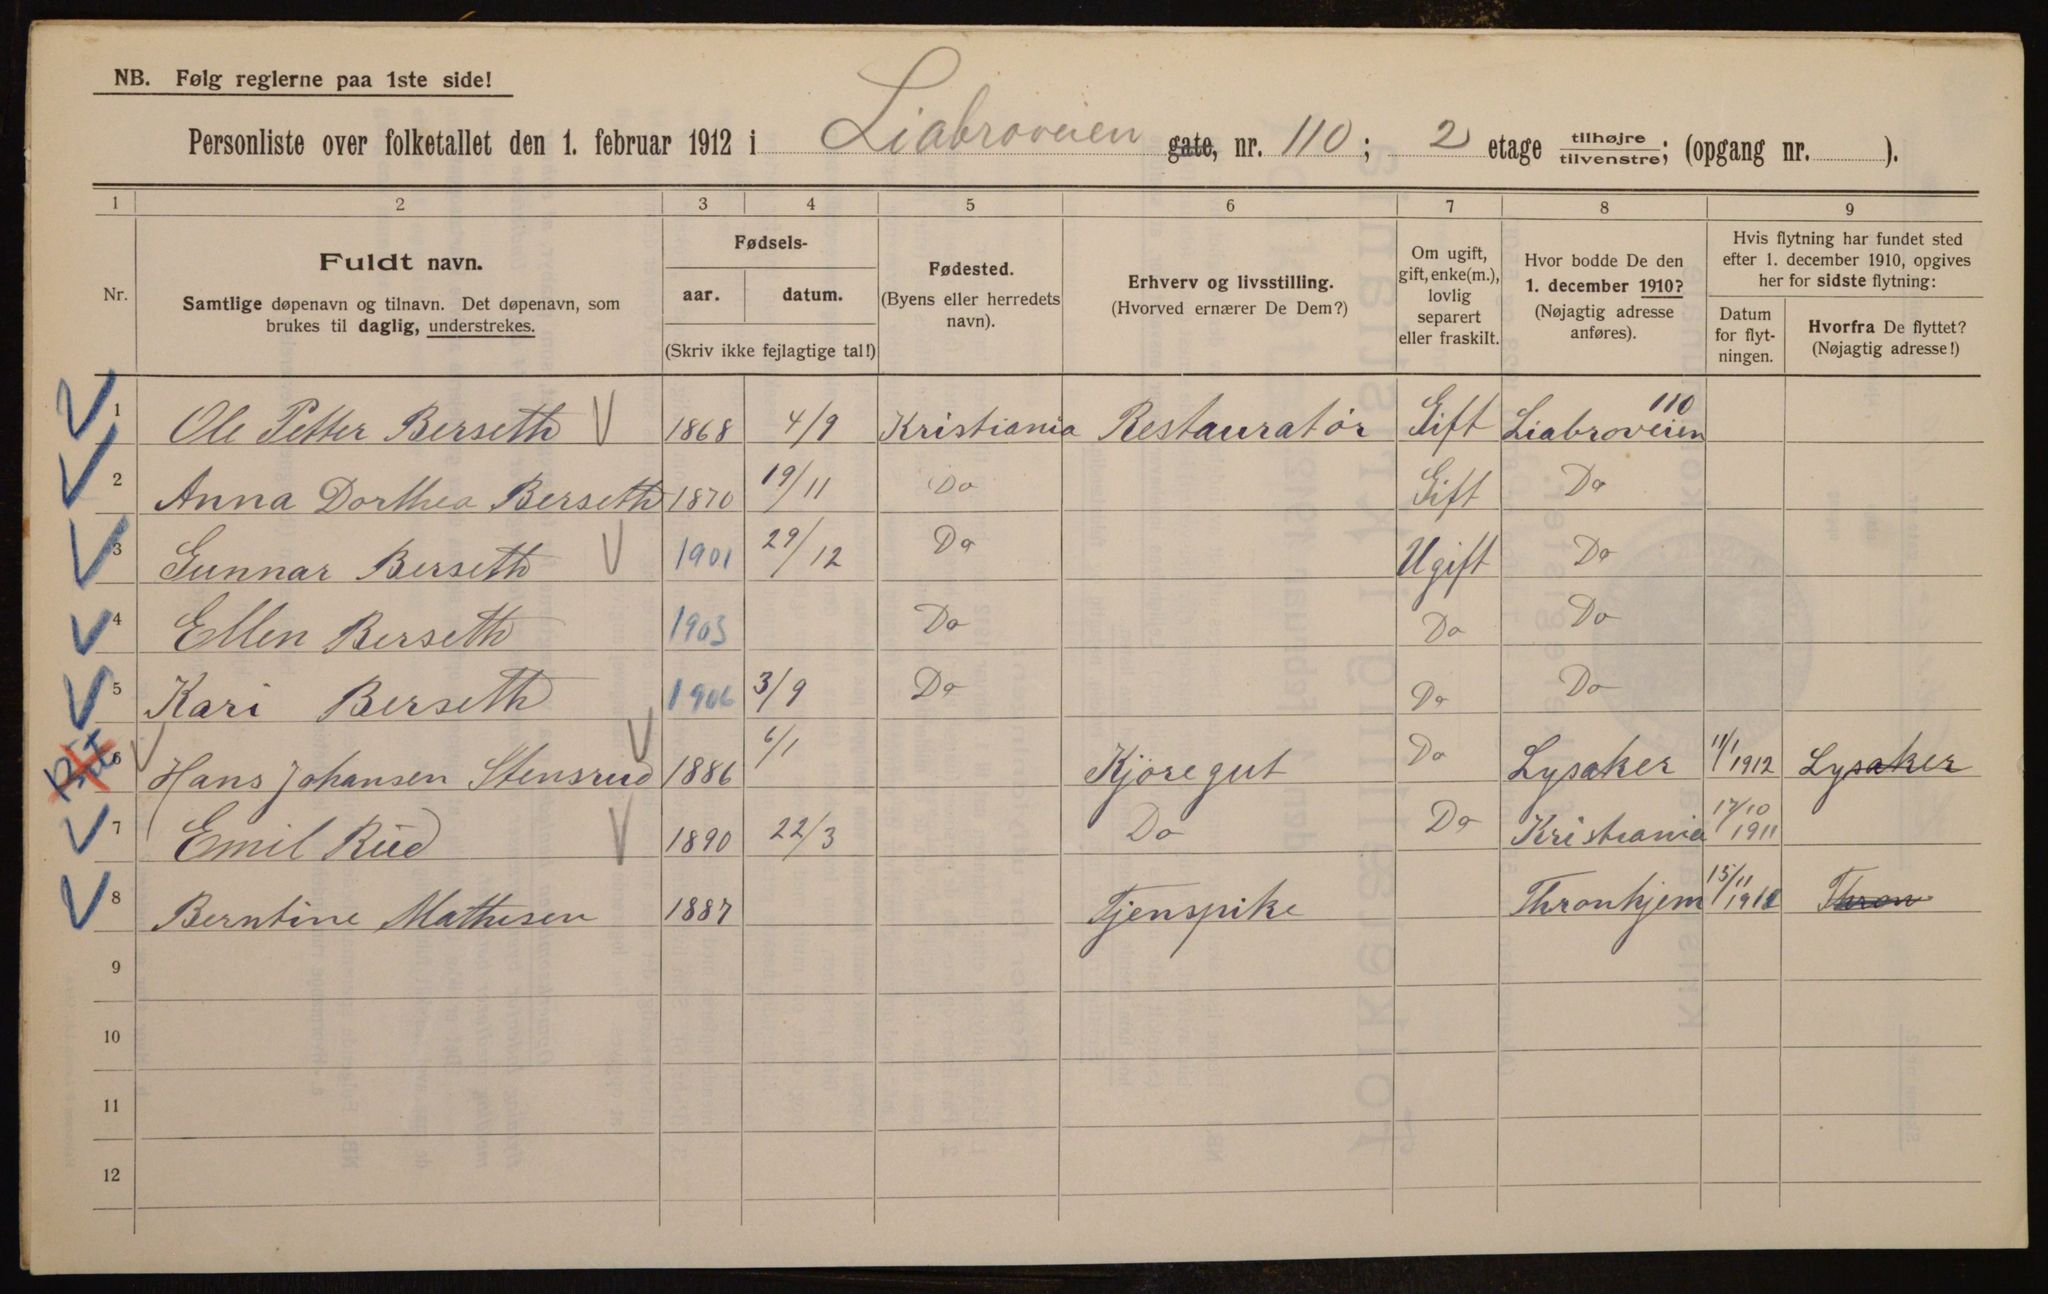 NB. Følg reglerne paa 1ste side!
Personliste over folketallet den 1. februar 1912 i Liabroveien gate, nr. 110; 2 etage tilhøjre/tilvenstre; (opgang nr. ).
1 2 3 4 5 6 7 8 9
Nr.
Fuldt navn.
Samtlige døpenavn og tilnavn. Det døpenavn, som
brukes til daglig, understrekes.
Fødsels-
aar. datum.
(Skriv ikke fejlagtige tal!)
Fødested.
(Byens eller herredets
navn).
Erhverv og livsstilling.
(Hvorved ernærer De Dem?)
Om ugift,
gift, enke(m.),
lovlig
separert
eller fraskilt.
Hvor bodde De den
1. december 1910?
(Nøjagtig adresse
anføres).
Hvis flytning har fundet sted
efter 1. december 1910, opgives
her for sidste flytning:
Datum
for flyt-
ningen.
Hvorfra De flyttet?
(Nøjagtig adresse!)
1 Ole Petter Berseth 1868 4/9 Kristiania Restauratør Gift Liabroveien 110
2 Anna Dorthea Berseth 1870 19/11 Do Gift Do
3 Gunnar Berseth 1901 29/12 Do Ugift Do
4 Ellen Berseth 1903 Do Do Do
5 Kari Berseth 1906 3/9 Do Do Do
6 Hans Johansen Stensrud 1886 6/1 Kjøregut Do Lysaker 11/1 1912 Lysaker
7 Emil Rud 1890 22/3 Do Do Kristiania 17/10 1911
8 Berntine Mathisen 1887 Tjenspike Thronhjem 15/11 1911 Thron
9
10
11
12